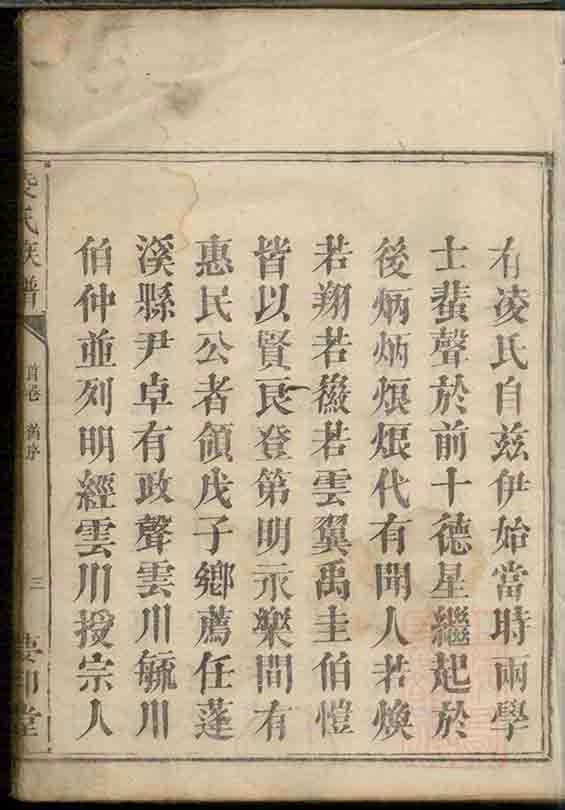 有凌氏自茲伊始當時兩學
士蜚聲於前十德星繼起於
後炳炳烺烺代有聞人若煥
若翔若徽若雲翼禹圭伯愷
皆以賢良登第明永樂間有
惠民公者領戊子鄉薦任蓬
溪縣尹卓有政聲雲川毓川
伯仲並列明經雲川授宗人
凌氏族譜
首卷 舊序
三